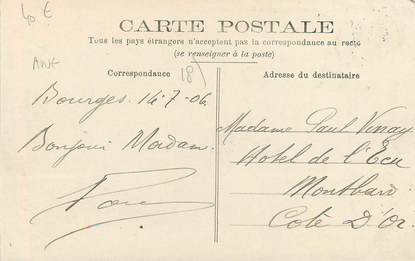 40.E
CARTE POSTALE
Tous les pays étrangers n'acceptent pas la correspondance au recto
(se renseigner à la poste)
ANE
18
Correspondance
Adresse du destinataire
Bourges. 14-7-06.
Bonjour Madam.
Madame Paul Vinay
Hotel de l'Ecu
Montbard
Cote D'Or.